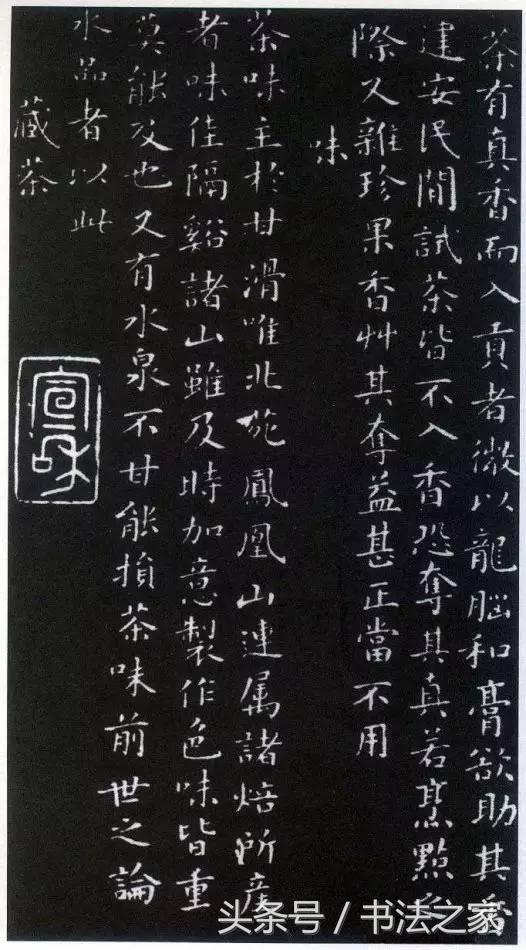 茶有真香而入貢者微以龍腦和膏欲助其香
建安民間試茶皆不入香恐奪其真若烹點之
際又雜珍果香艸其奪益甚正當不用
味
茶味主於甘滑唯北苑鳳凰山連属諸焙所産
者味佳隔谿諸山雖及時加意製作色味皆重
莫能及也又有水泉不甘能損茶味前世之論
水品者以此
藏茶
宣和
头条号 / 书法之家